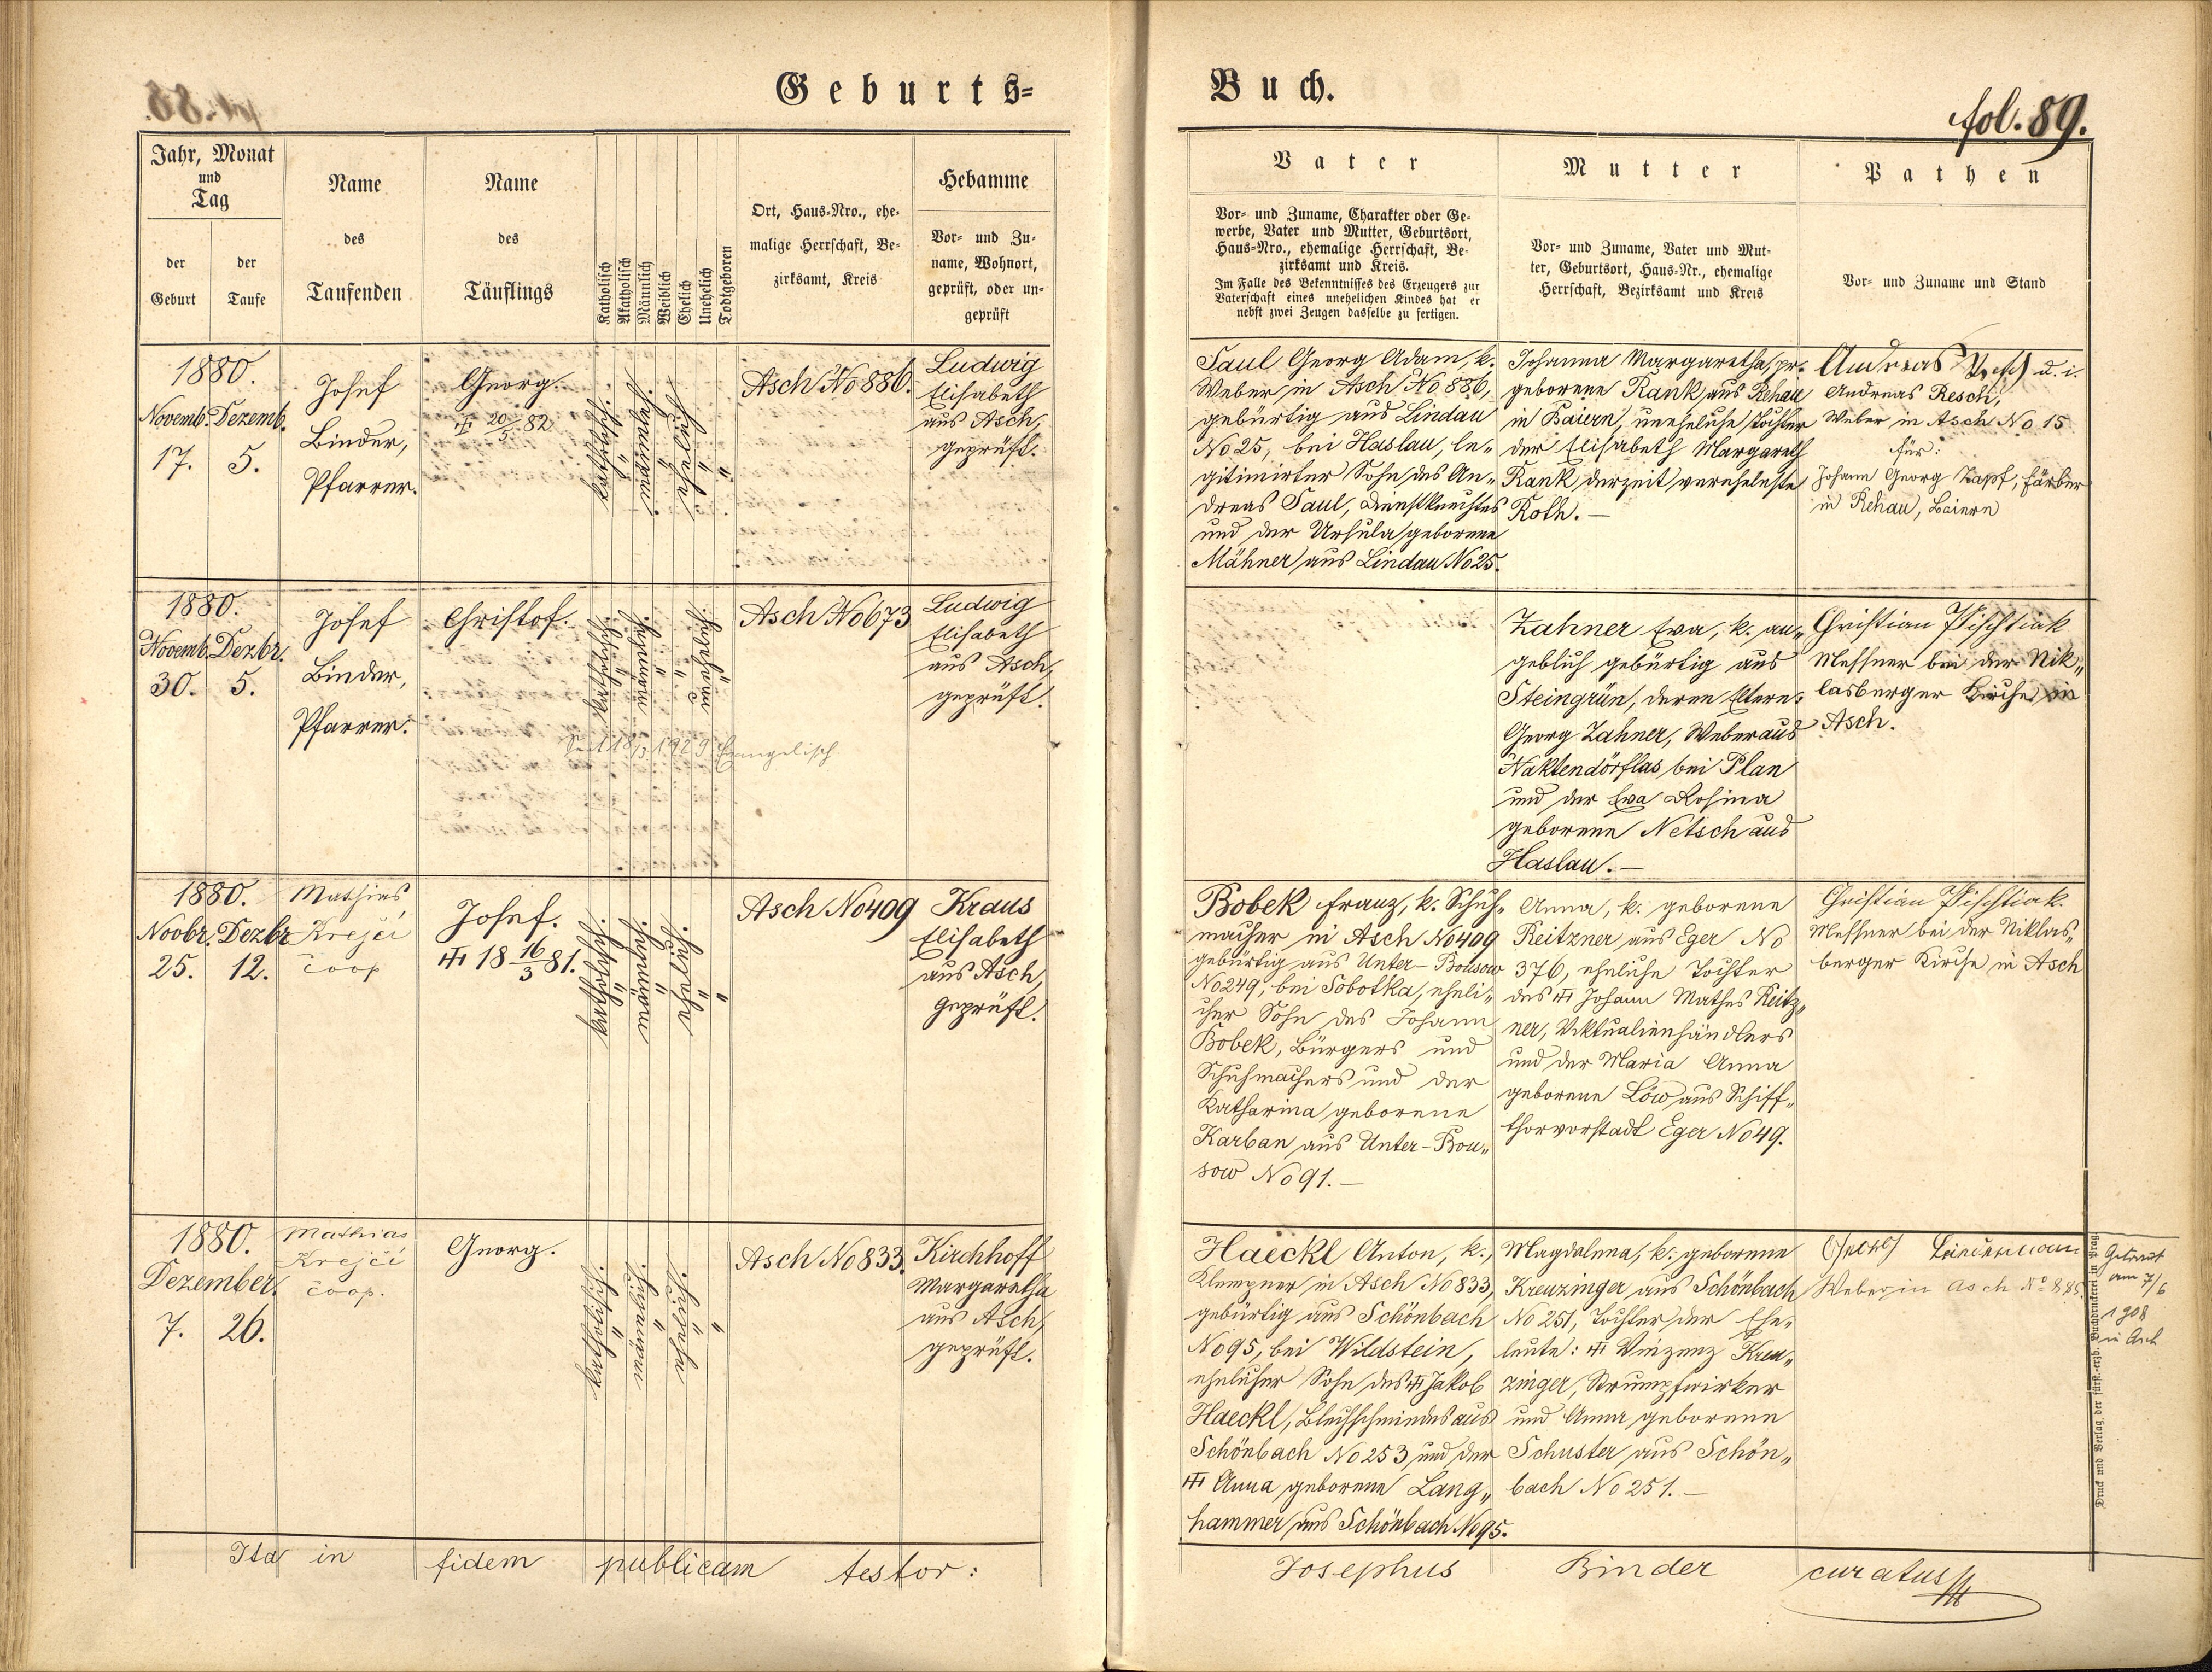 Geburts-
Buch.
fol. 89.
Jahr, Monat
und
Tag
der
Geburt
der
Taufe
Name
des
Taufenden
Name
des
Täuflings
Katholisch
Akatholisch
Männlich
Weiblich
Ehelich
Unehelich
Todtgeboren
Ort, Haus-Nro., ehe-
malige Herrschaft, Be-
zirksamt, Kreis
Hebamme
Vor- und Zu-
name, Wohnort,
geprüft, oder un-
geprüft
Vater
Vor- und Zuname, Charakter oder Ge-
werbe, Vater und Mutter, Geburtsort,
Haus-Nro., ehemalige Herrschaft, Be-
zirksamt und Kreis.
Im Falle des Bekenntnisses des Erzeugers zur
Vaterschaft eines unehelichen Kindes hat er
nebst zwei Zeugen dasselbe zu fertigen.
Mutter
Vor- und Zuname, Vater und Mut-
ter, Geburtsort, Haus-Nr., ehemalige
Herrschaft, Bezirksamt und Kreis
Pathen
Vor- und Zuname und Stand
1880.
Novemb. Dezemb.
17. 5.
Josef
Binder,
Pfarrer.
Georg.
20/5 82
katholisch.
"
männlich.
"
ehelich.
"
"
Asch No 886.
Ludwig
Elisabeth
aus Asch,
geprüft.
Saul Georg Adam, k.
Weber in Asch No 886,
gebürtig aus Lindau
No 25, bei Haslau, le-
gitimirter Sohn des An-
dreas Saul, Dienstknechtes
und der Ursula geborene
Mähner aus Lindau No 25.
Johanna Margaretha, pr.
geborene Rank aus Rehau
in Baiern, uneheliche Tochter
der Elisabeth Margareth
Rank derzeit verehelichte
Roth. —
Andreas Resch d. i.
Andreas Resch,
Weber in Asch No 15
für:
Johann Georg Zapf, Färber
in Rehau, Baiern
1880.
Novemb. Dezbr.
30. 5.
Josef
Binder,
Pfarrer.
Christof.
Seit 1929 Evangelisch
Asch No 673
Ludwig
Elisabeth
aus Asch,
geprüft.
Zahner Eva, k. an-
geblich gebürtig aus
Steingrün, deren Eltern:
Georg Zahner, Weber aus
Naktendörflas bei Plan
und der Eva Rosina
geborene Netsch aus
Haslau. —
Christian Pischtiak
Messner bei der Nik-
lasberger Kirche in
Asch.
1880.
Novbr. Dezbr
25. 12.
Mathias
Krejčí
coop
Josef.
18 16/3 81.
Asch No 409
Kraus
Elisabeth
aus Asch,
geprüft.
Bobek Franz, k. Schuh-
macher in Asch No 409
gebürtig aus Unter-Bousow
No 249, bei Sobotka, eheli-
cher Sohn des Johann
Bobek, Bürgers und
Schuhmachers und der
Katharina geborene
Karban aus Unter-Bou-
sow No 91. —
Anna, k. geborene
Reitzner aus Eger No
376, eheliche Tochter
des Johann Mathes Reitz-
ner, Viktualienhändlers
und der Maria Anna
geborene Löw aus Schiff-
thorvorstadt Eger No 49.
Christian Pischtiak.
Messner bei der Niklas-
berger Kirche in Asch
1880.
Dezember.
7. 26.
Mathias
Krejčí
coop.
Georg.
Asch No 833.
Kirchhoff
Margaretha
aus Asch,
geprüft.
Haeckl Anton, k.,
Klempner in Asch No 833,
gebürtig aus Schönbach
No 95, bei Wildstein,
ehelicher Sohn des Jakob
Haeckl, Blechschmiedes aus
Schönbach No 253 und der
Anna geborene Lang-
hammer aus Schönbach No 95.
Magdalena, k. geborene
Kreuzinger aus Schönbach
No 251, Tochter der Ehe-
leute: Vinzenz Kreu-
zinger, Strumpfwirker
und Anna geborene
Schuster aus Schön-
bach No 251. —
Weber in Asch No
Getraut
am 7/6
1908
in Asch
Druck und Verlag der fürst.-erzb. Buchdruckerei in Prag
Ita in fidem publicam testor:
Josephus Binder curatus